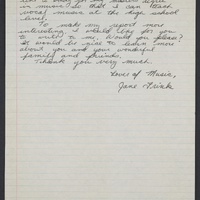 in music. So that I can teach
vocal music at the high school
level.
To make my report more
interesting, I would like for you
to write to me. Would you please?
It would be nice to learn more
about you and your wonderful
family and friends.
Thank you very much.
Lover of Music,
Jane